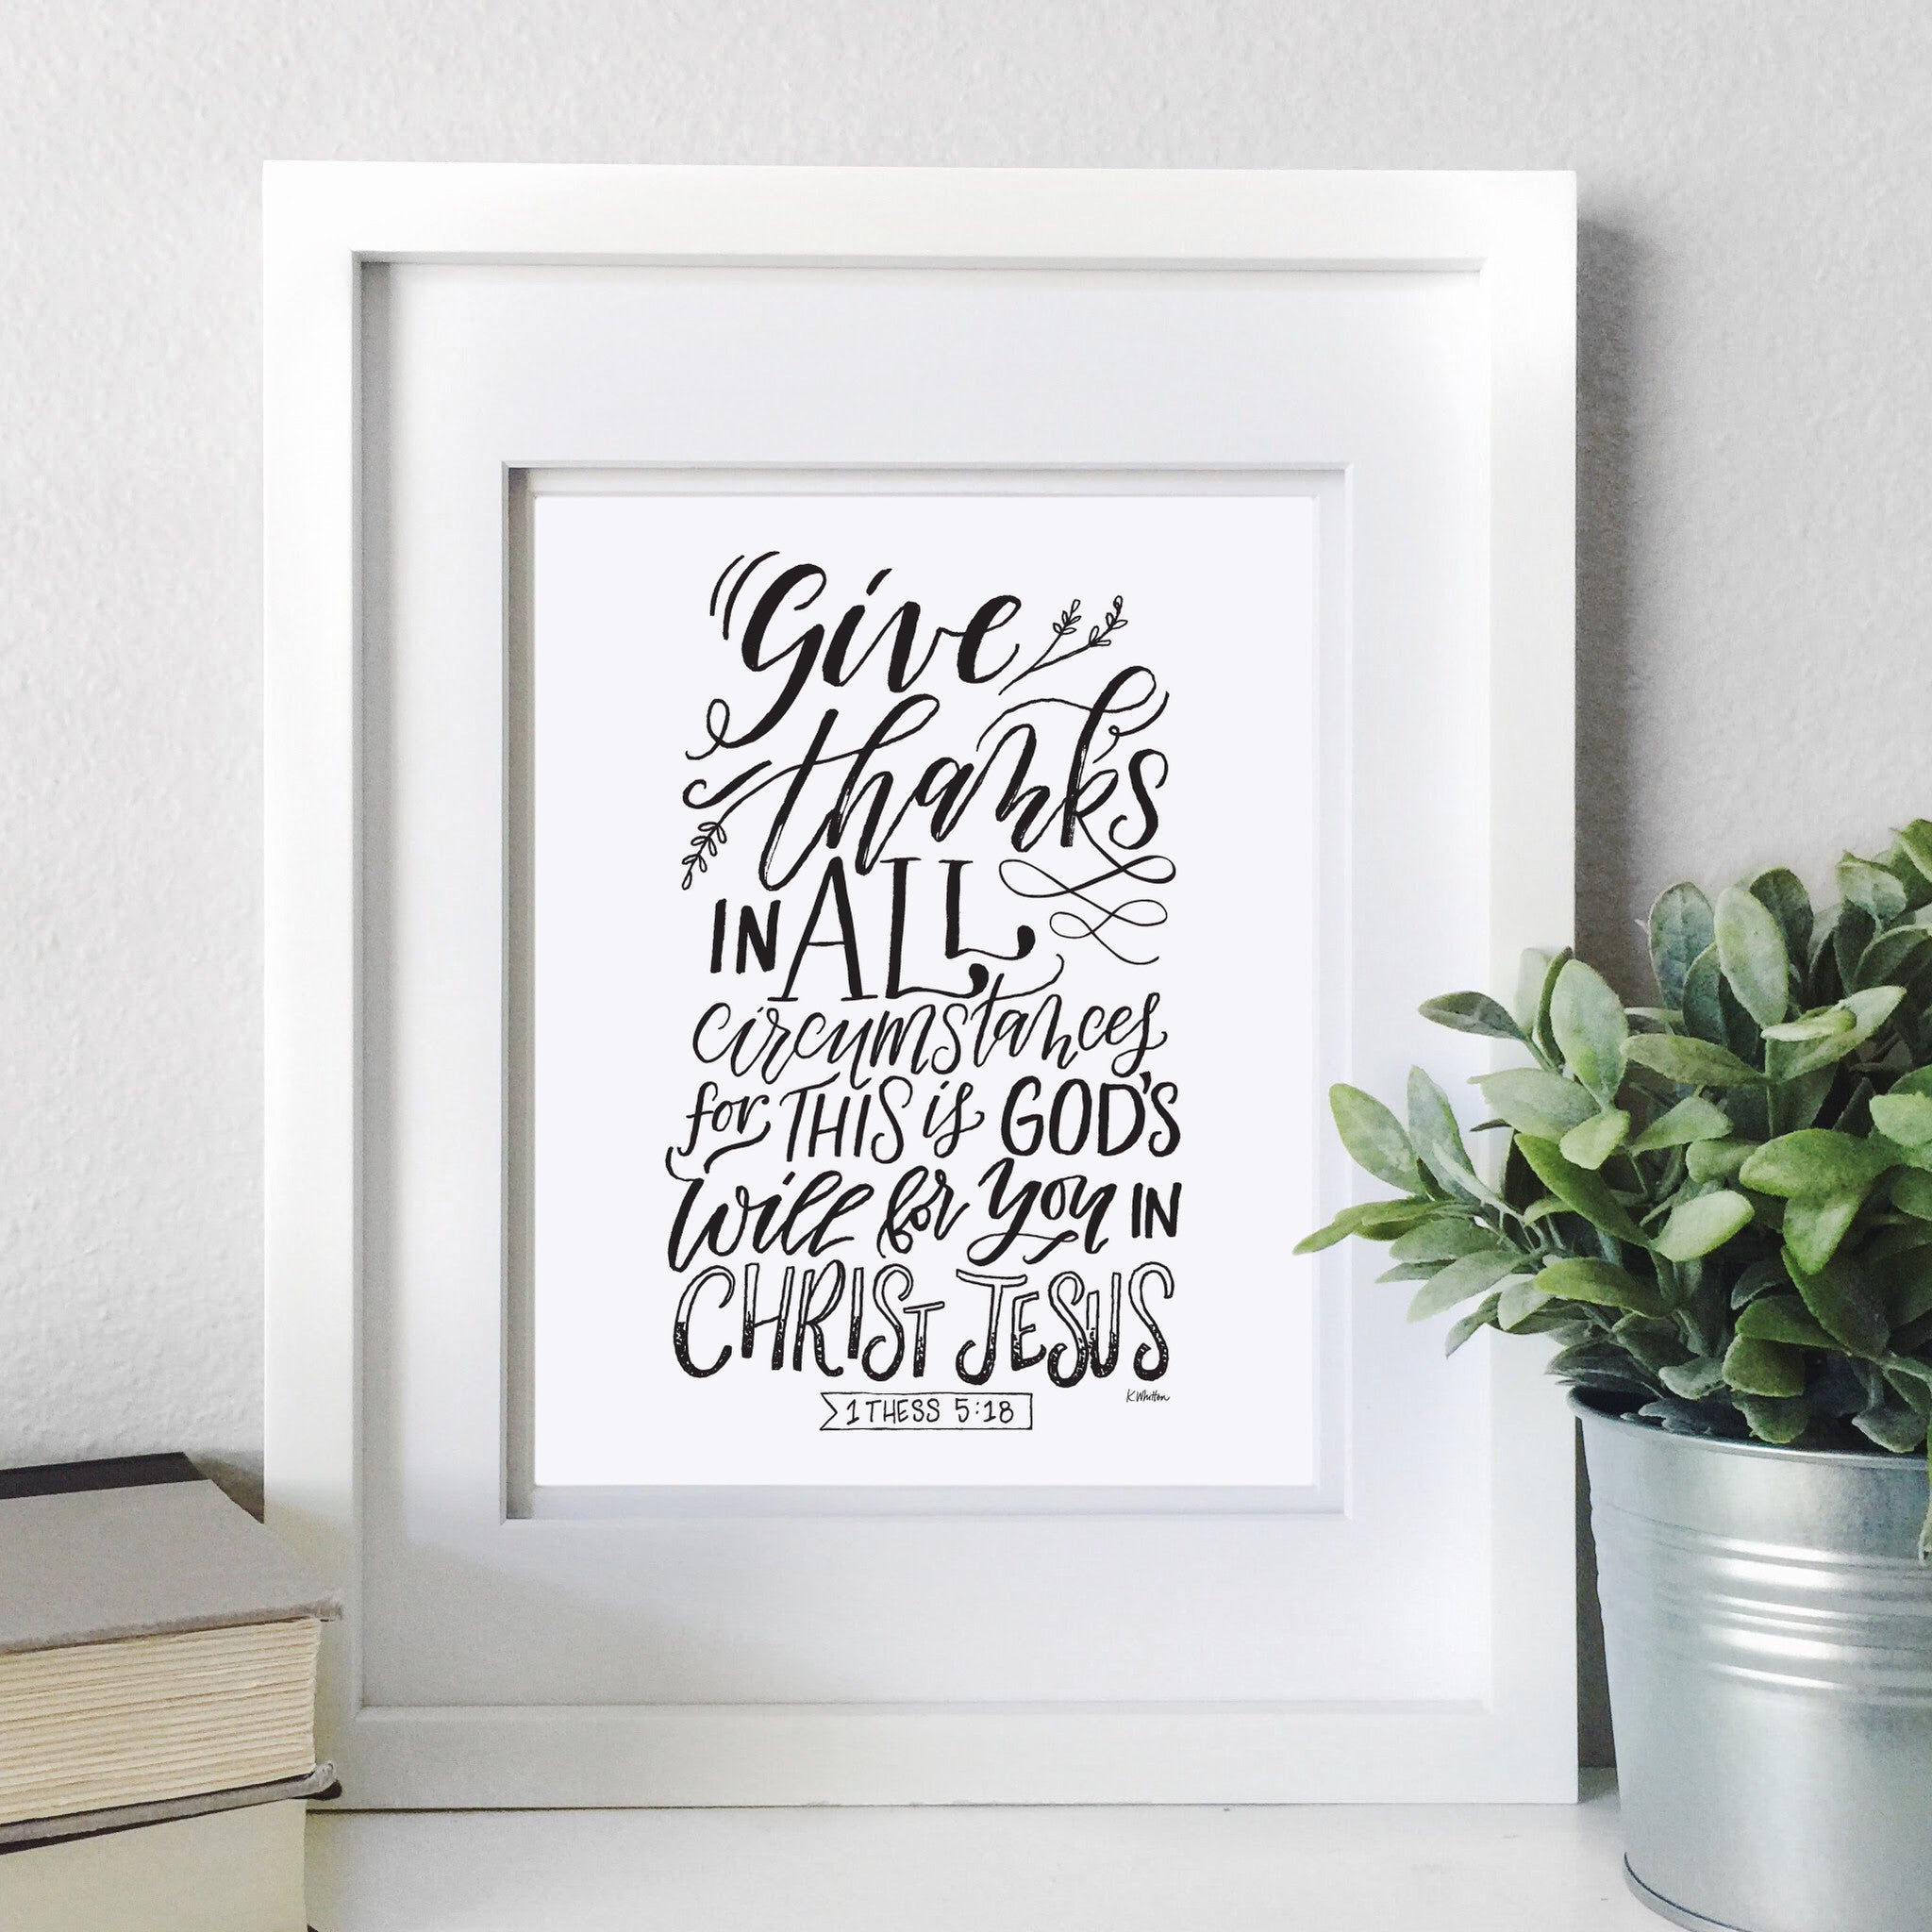 "Give
thanks
IN ALL
circumstances
for THIS is GOD'S
will for you IN
CHRIST JESUS
K. Whitten
1 THESS 5:18